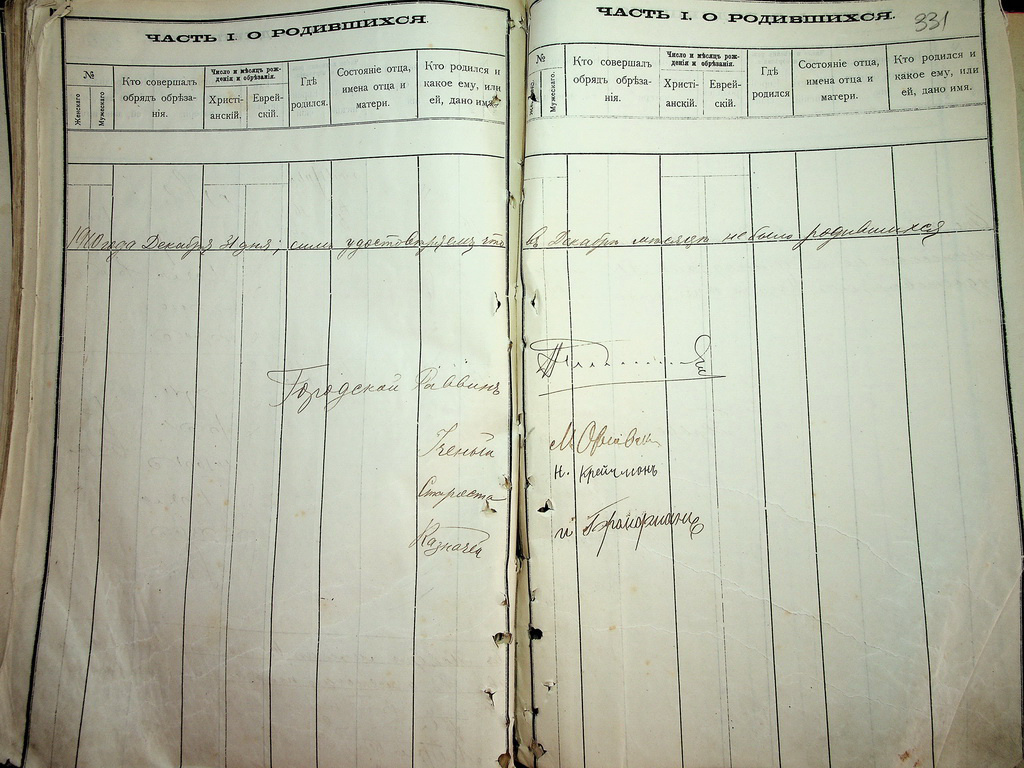 ЧАСТЬ I. О РОДИВШИХСЯ.
№
Женскаго
Мужескаго.
Кто совершалъ обрядъ обрѣзанія.
Число и мѣсяцъ рожденія и обрѣзанія.
Христіанскій.
Еврейскій.
Гдѣ родился.
Состояніе отца, имена отца и матери.
Кто родился и какое ему, или ей, дано имя.
ЧАСТЬ I. О РОДИВШИХСЯ.
331
№
Мужескаго.
Кто совершалъ обрядъ обрѣзанія.
Число и мѣсяцъ рожденія и обрѣзанія.
Христіанскій.
Еврейскій.
Гдѣ родился
Состояніе отца, имена отца и матери.
Кто родился и какое ему, или ей, дано имя.
года Декабря 31 дня; симъ удостовѣряемъ что въ Декабрѣ мѣсяцѣ не было родившихся
Городской Раввинъ
Ученый М.
Н. Крейчманъ
Староста
Казначей И